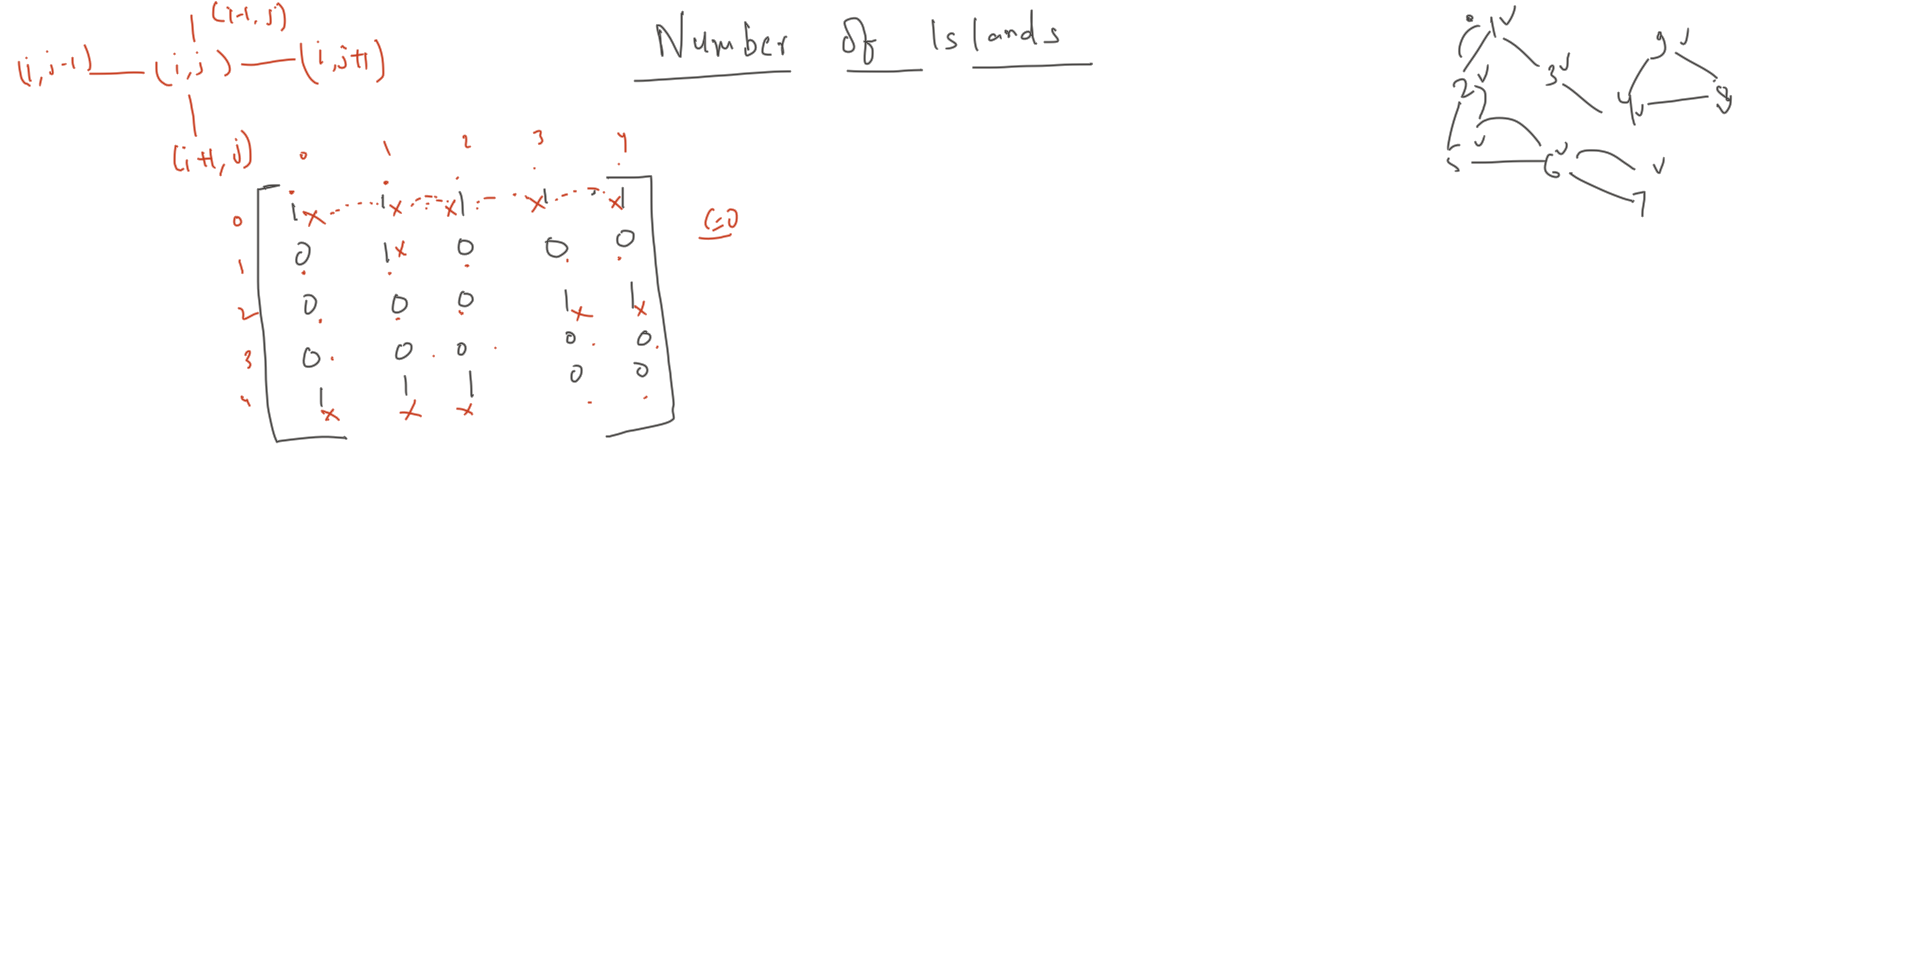 Number of Islands
(i-1, j)
(i, j-1) (i, j) (i, j+1)
(i+1, j)
0 1 2 3 4
0 1x 1x x1 x1 x1
1 0 1x 0 0 0
2 0 0 0 1x 1x
3 0 0 0 0 0
4 1x 1x 1x 0 0
C=0
1
2 3 9
4 8
5 6
7